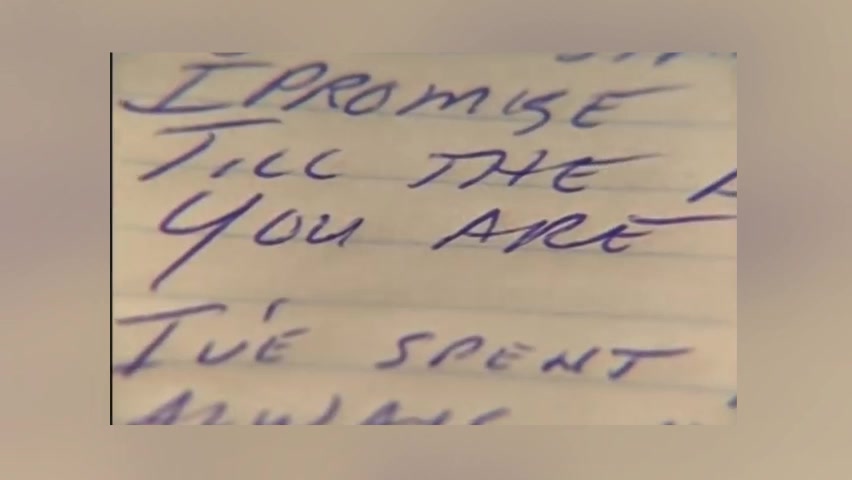 I PROMISE
TILL THE
YOU ARE
I'VE SPENT
ALWAYS